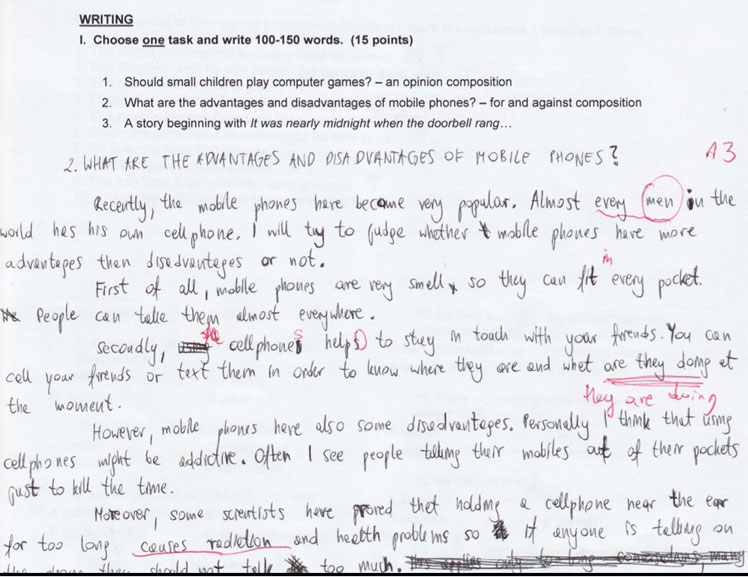 WRITING
I. Choose one task and write 100-150 words. (15 points)
1. Should small children play computer games? – an opinion composition
2. What are the advantages and disadvantages of mobile phones? – for and against composition
3. A story beginning with It was nearly midnight when the doorbell rang…
2. WHAT ARE THE ADVANTAGES AND DISADVANTAGES OF MOBILE PHONES? A3
Recently, the mobile phones have become very popular. Almost every men in the
world has his own cellphone. I will try to judge whether mobile phones have more
advantages then disadvantages or not.
in
First of all, mobile phones are very small, so they can fit every pocket.
People can take them almost everywhere.
Secondly, cellphones helps to stay in touch with your friends. You can
call your friends or text them in order to know where they are and what are they doing at
they are doing
the moment.
However, mobile phones have also some disadvantages. Personally I think that using
cellphones might be addictive. Often I see people taking their mobiles out of their pockets
just to kill the time.
Moreover, some scientists have proved that holding a cellphone near the ear
for too long causes radiation and health problems so if anyone is talking on
the phone they should not talk too much.